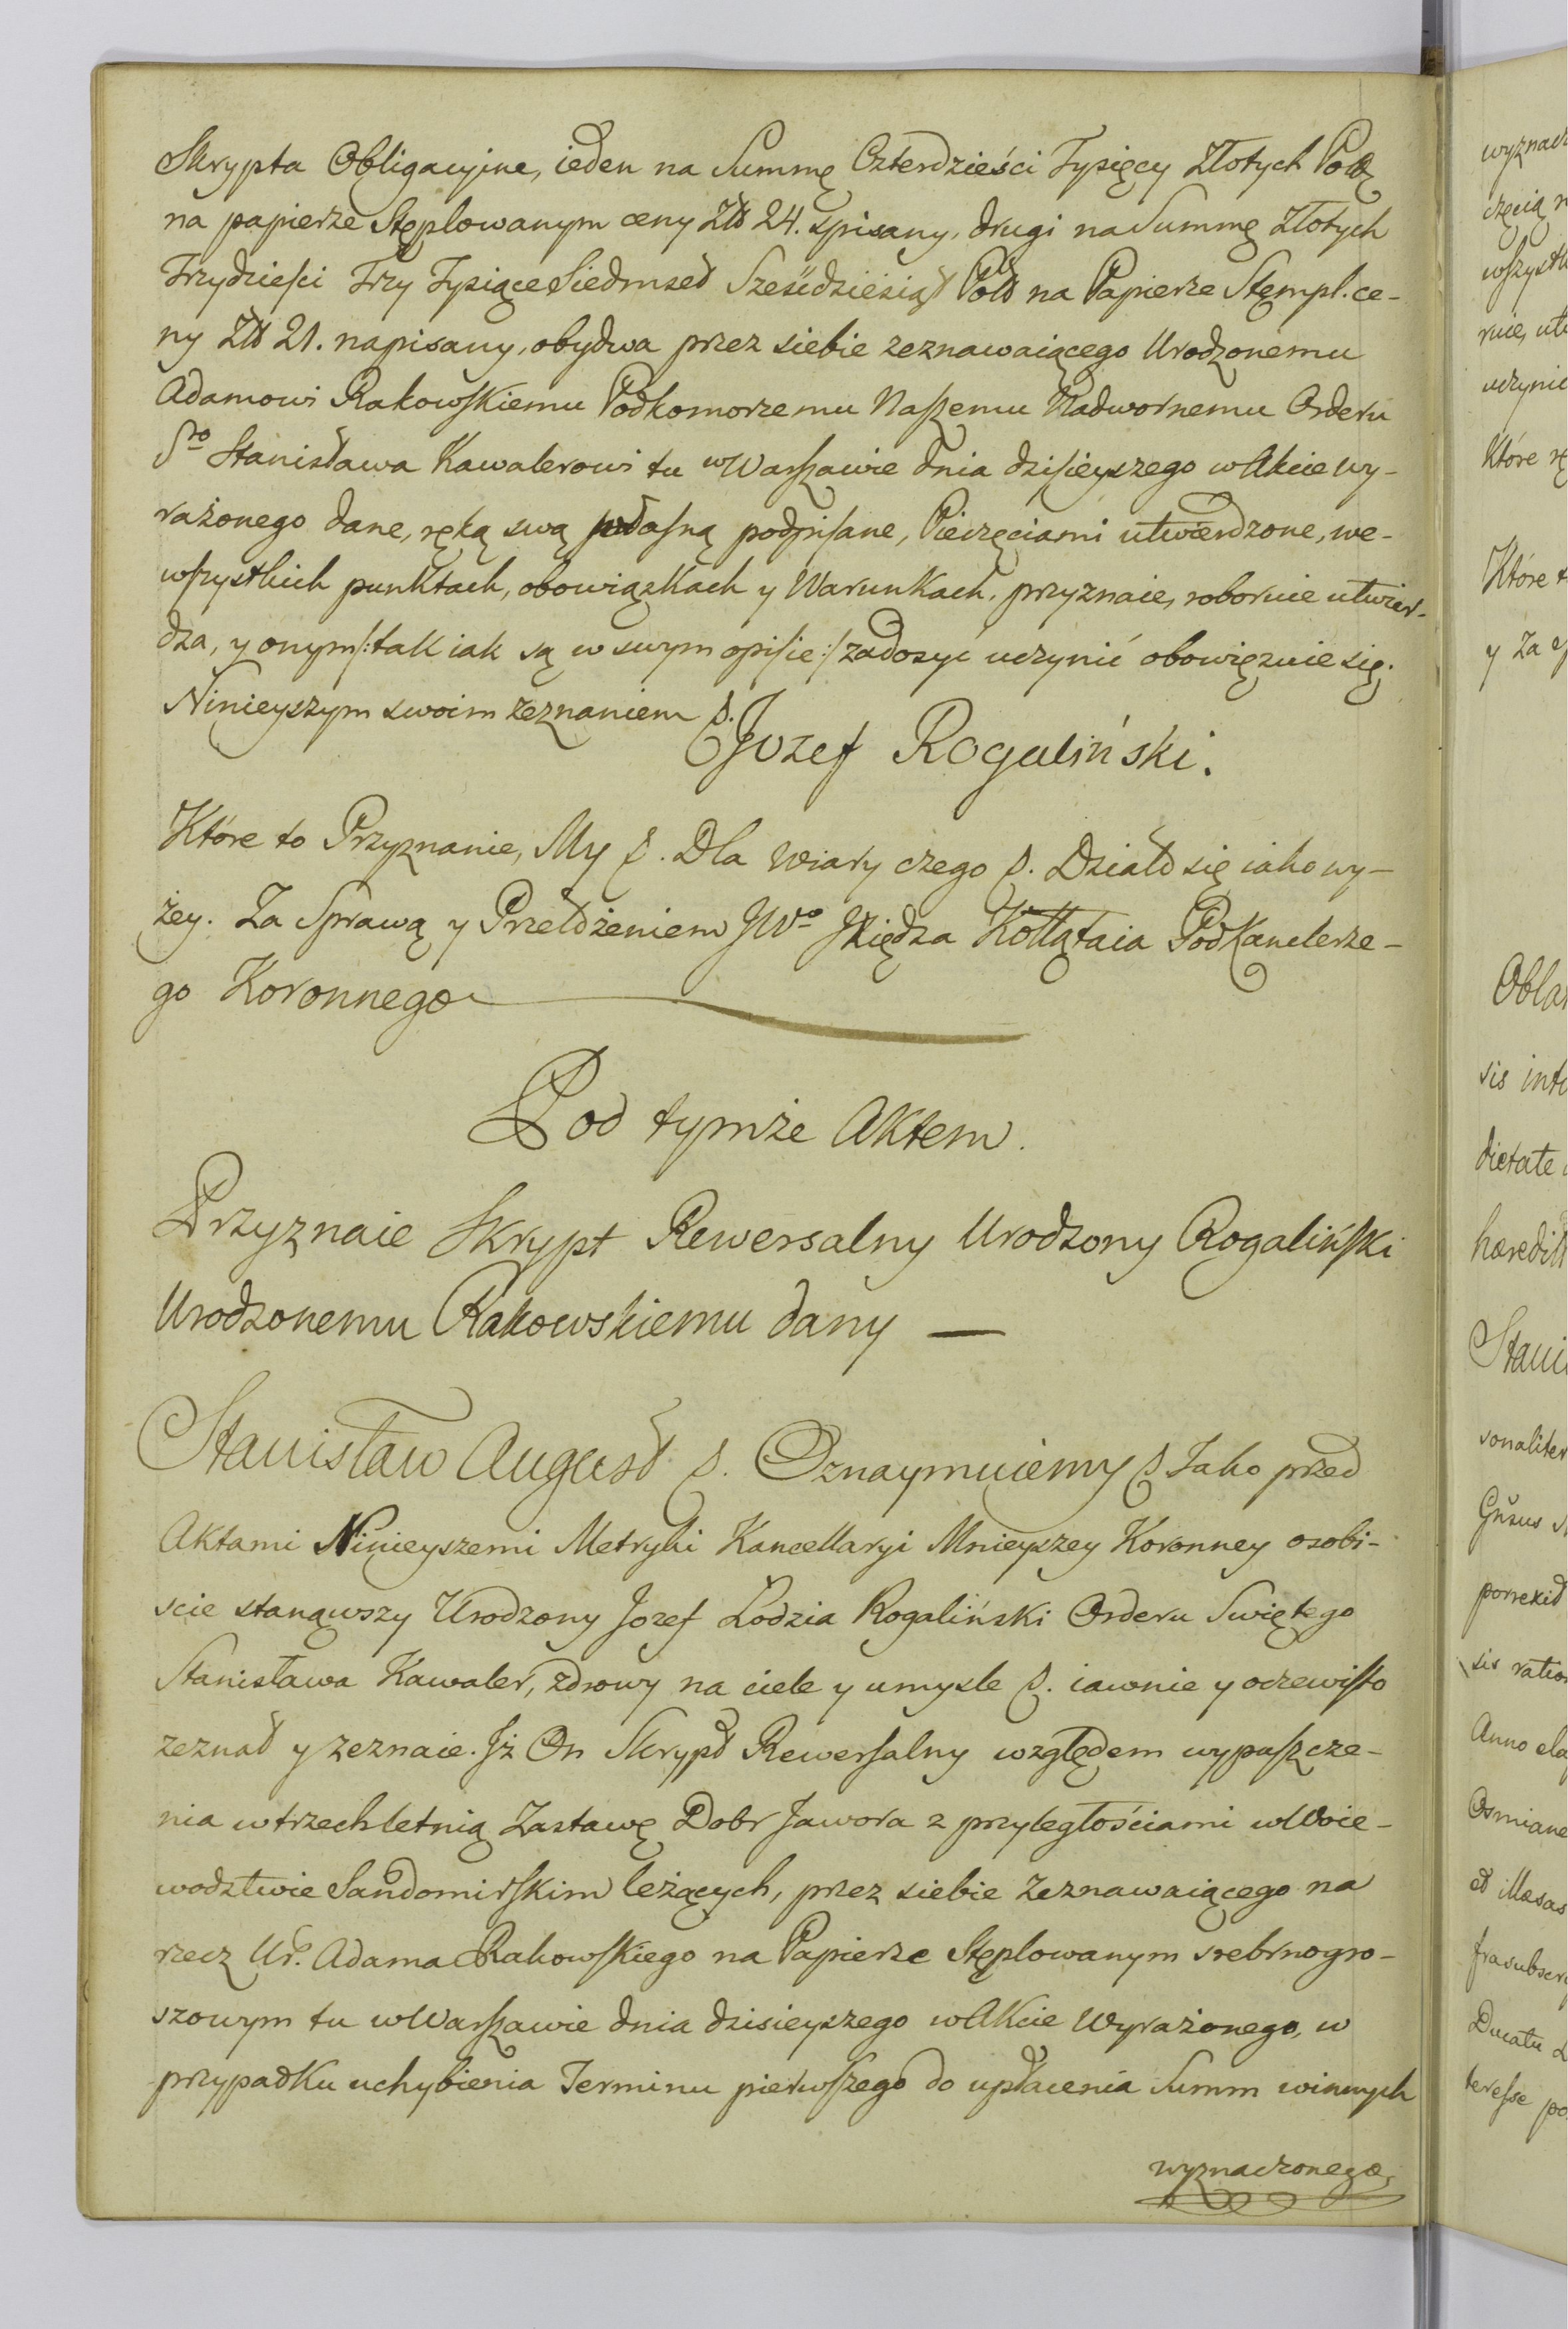 Skrypta Obligacyine, ieden na Summę Czterdzieści Tysięcy Złotych Pol:
na papierze Stęplowanym ceny Zł 24. spisany, drugi na Summę Złotych
Trzydzieſci Trzy Tysiące Siedmset Sześćdziesiąt Pol: na Papierze Stęmpl. ce-
ny Zł 21. napisany, obydwa przez siebie zeznawaiącego Urodzonemu
Adamowi Rakowſkiemu Podkomorzemu Naſzemu Nadwornemu Orderu
Sgo Stanisława Kawalerowi tu w Warſzawie dnia dziſieyszego w Akcie wy-
rażonego dane, ręką swą własną podpiſane, Pieczęciami utwierdzone, we-
wſzystkich punktach, obowiązkach y Warunkach, przyznaie, roboruie utwier-
dza, y onym /: tak iak są w swym opiſie :/ zadosyć uczynić obowięzuie się.
Ninieyszym swoim zeznaniem &.
Jozef Rogaliński.
Które to Przyznanie, My &. Dla wiary czego &. Działo się iako wy-
żey. Za Sprawą y Przełożeniem JWo JXiędza Kołłątaia PodKanclerze-
go Koronnego
Pod tymże Aktem.
Przyznaie Skrypt Rewersalny Urodzony Rogalińſki
Urodzonemu Rakowskiemu dany —
Stanisław August &. Oznaymuiemy & Jako przed
Aktami Ninieyszemi Metryki Kancellaryi Mnieyszey Koronney osobi-
scie stanąwszy Urodzony Jozef Lodzia Rogaliński Orderu Swiętego
Stanisława Kawaler, zdrowy na ciele y umysle &. iawnie y oczewiſto
zeznał y zeznaie. Jż On Skrypt Rewerſalny względem wypuſzcze-
nia w trzechletnią Zastawę Dobr Jawora z przyległościami w Woie-
wodztwie Sandomirſkim leżących, przez siebie zeznawaiącego na
rzecz Ur. Adama Rakowſkiego na Papierze Stęplowanym srebrnogro-
szowym tu w Warſzawie dnia dzisieyszego w Akcie Wyrażonego, w
przypadku uchybienia Terminu pierwſzego do upłacenia Summ winnych
wyznaczonego,